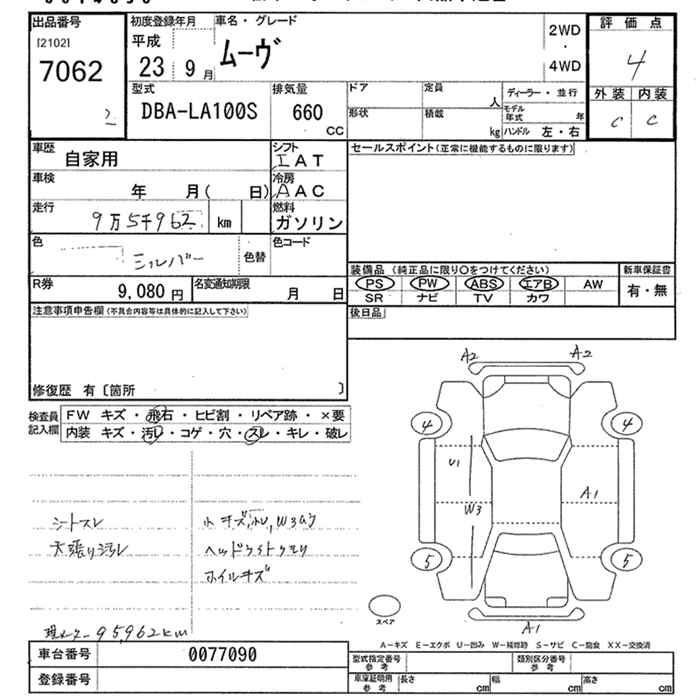 出品番号 初度登録年月 車名・グレード 2WD ・ 4WD 評価点
[2102] 平成 ムーヴ 4
7062 23 9月
2
型式 排気量 ドア 定員 人 ディーラー・並行 外装 内装
DBA-LA100S 660 CC 形状 積載 kg モデル年式 年 C C
ハンドル 左・右
車歴 自家用 シフト I A T セールスポイント(正常に機能するものに限ります)
車検 年 月( 日) 冷房 A A C
走行 9万5千962 km 燃料 ガソリン
色 シルバー 色替 色コード
装備品(純正品に限り○をつけてください) 新車保証書
R券 9,080円 名変通知期限 月 日 PS PW ABS エアB AW 有・無
SR ナビ TV カワ
注意事項申告欄(不具合内容等は具体的に記入して下さい) 後日品
修復歴 有〔箇所 〕
検査員記入欄 FW キズ・飛石・ヒビ割・リペア跡・×要
内装 キズ・汚レ・コゲ・穴・スレ・キレ・破レ
シートスレ 小キズ,凹,W3あり
天張り汚レ ヘッドライトクモリ
ホイルキズ
現メーター95962km
A2 A2
4 4
U1
A1
W3
5 5
スペア
A1
A-キズ E-エクボ U-凹み W-補修跡 S-サビ C-腐食 XX-交換済
車台番号 0077090 型式指定番号 参考 類別区分番号 参考
登録番号 車庫証明用 参考 長さ cm 幅 cm 高さ cm